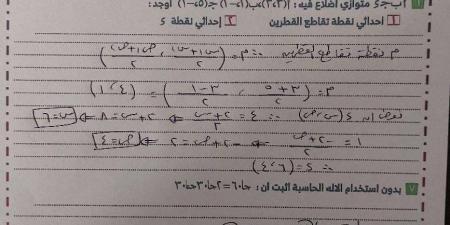 أ ب ج د متوازي أضلاع فيه: أ(٣،٢) ب(٤،-١) ج(٥،-١) أوجد:
١ إحداثي نقطة تقاطع القطرين ٢ إحداثي نقطة د
م نقطة تقاطع القطرين ∴ م = (س١+س٢/٢ ، ص١+ص٢/٢)
م = (٣+٥/٢ ، ٣-١/٢) = (٤،١)
د(س،ص) ∴ ٤ = س+٢/٢ ⇐ س+٢=٨ ⇐ س=٦
١ = ص+-٢/٢ ⇐ -٢+ص=٢ ⇐ ص=٤
∴ د = (٦،٤)
٧ بدون استخدام الاله الحاسبة اثبت ان : حا٦٠=٢حا٣٠حتا٣٠